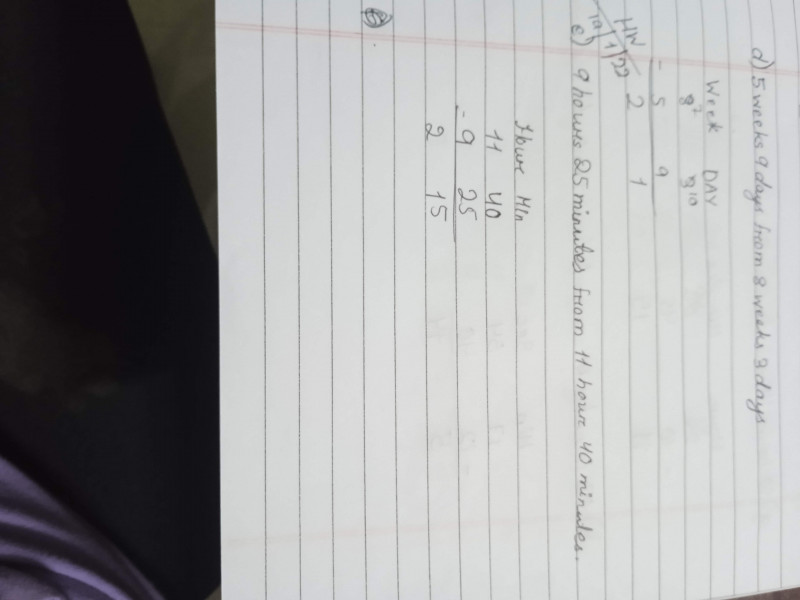 d) 5 weeks 9 days from 8 weeks 3 days
Week DAY
8 7 3 10
- 5 9
2 1
HW
e) 9 hours 25 minutes from 11 hour 40 minutes.
Hour Min
11 40
- 9 25
2 15